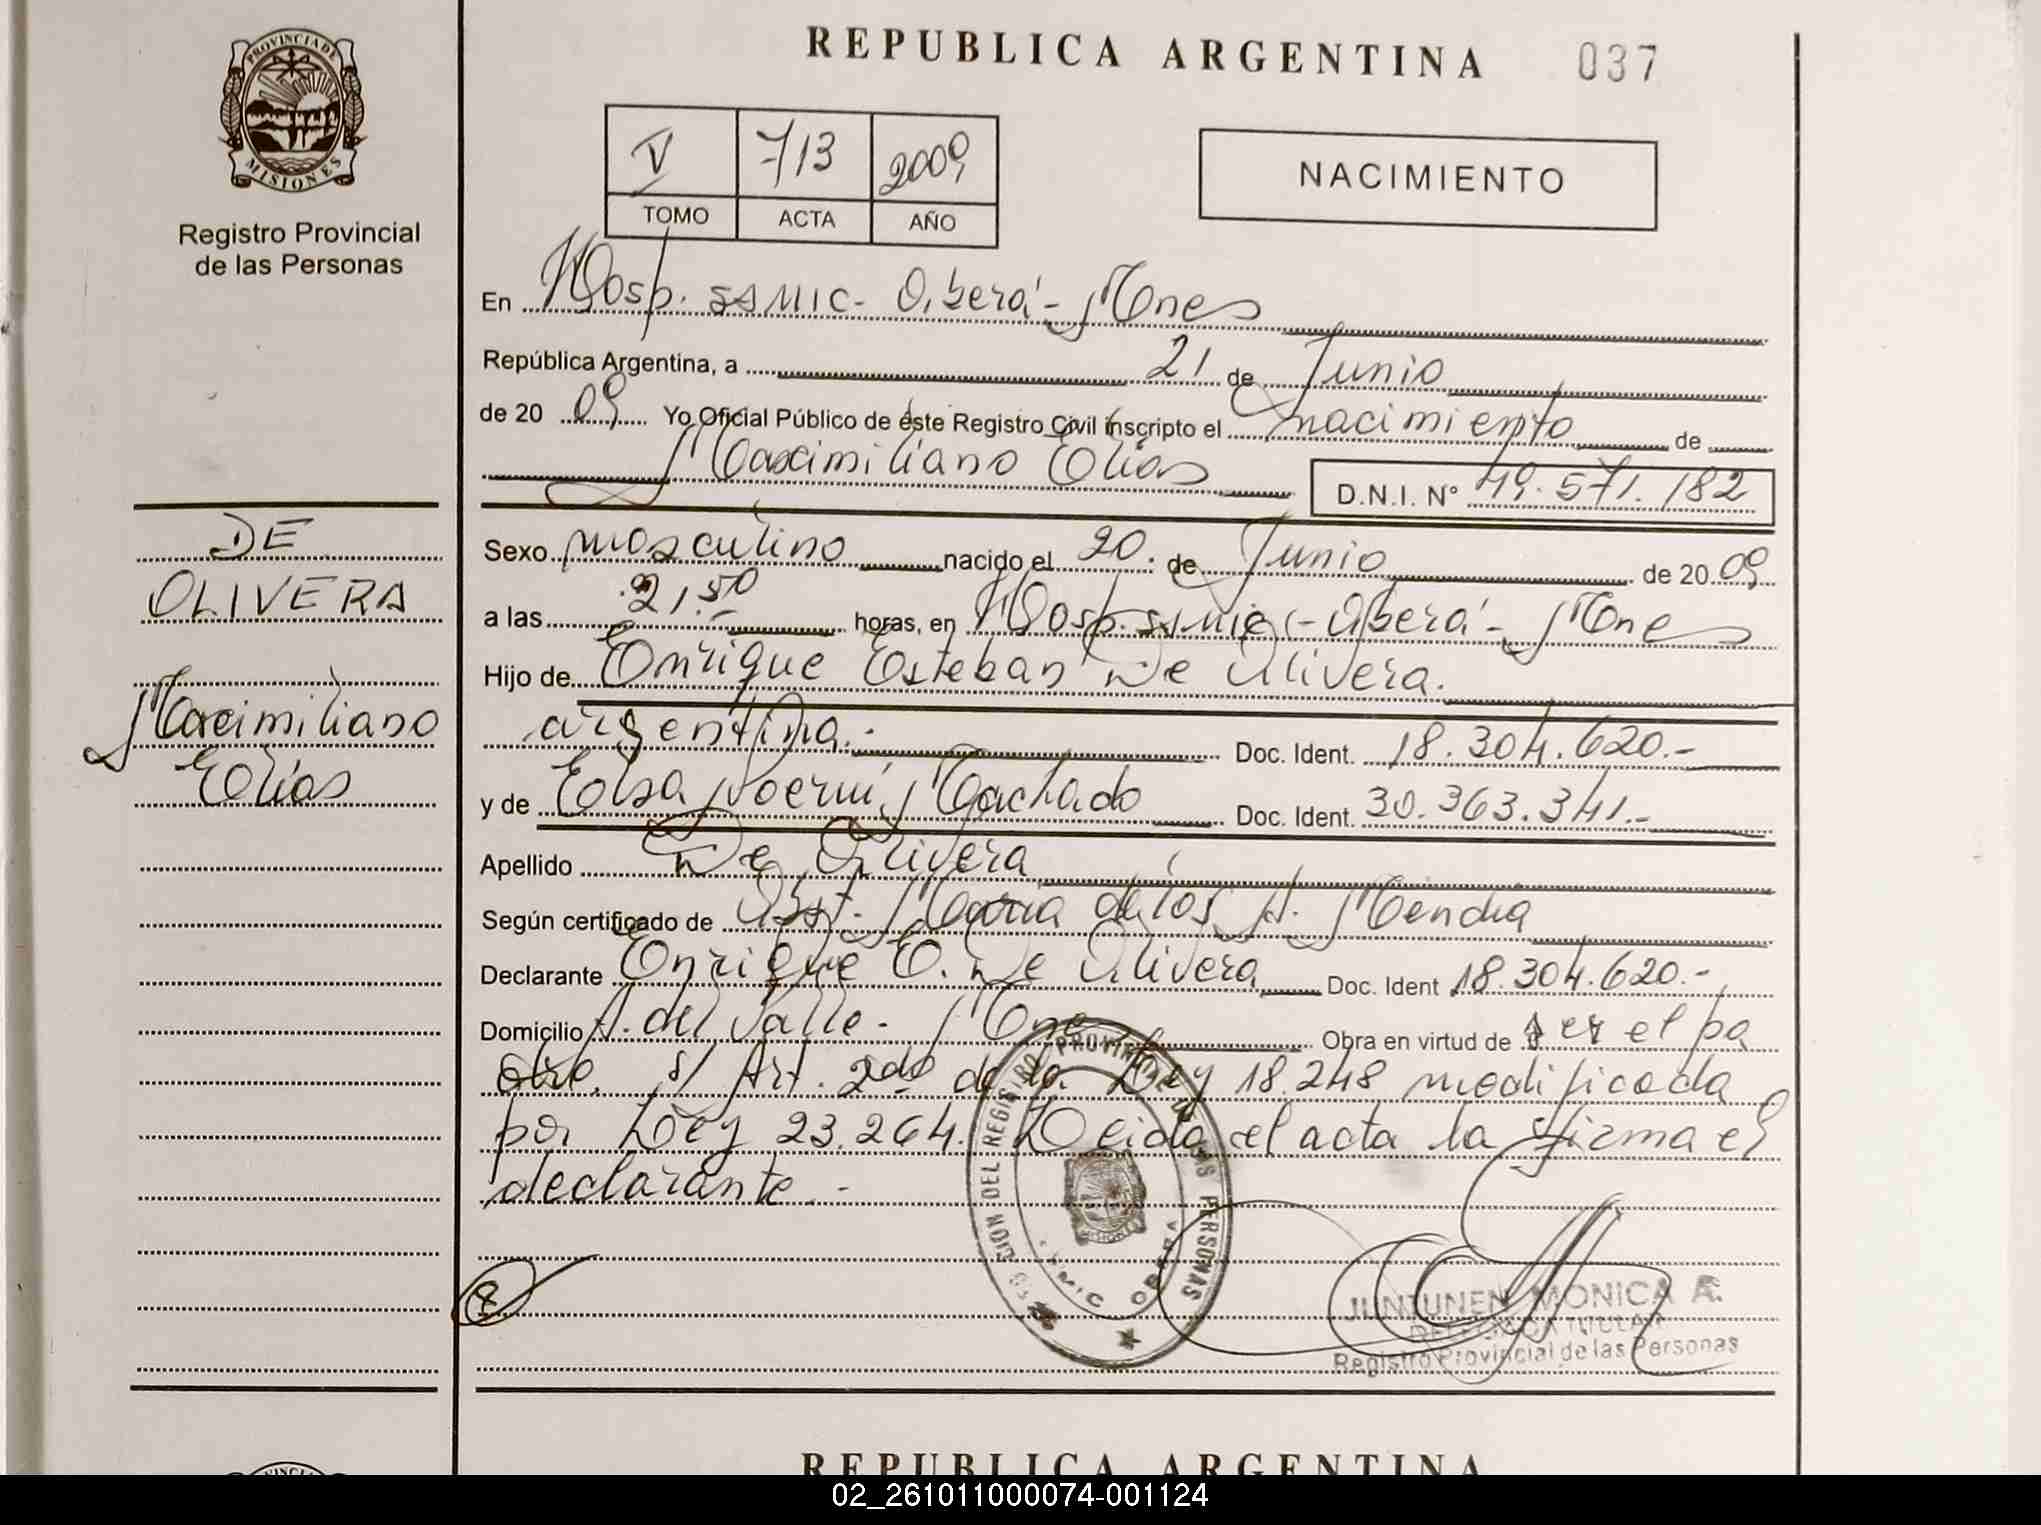 PROVINCIA DE
MISIONES
Registro Provincial
de las Personas
REPUBLICA ARGENTINA 037
V 713 2009
TOMO ACTA AÑO
NACIMIENTO
En Hosp. SSMIC- Oberá- Mnes
República Argentina, a 21 de Junio
de 20 09 Yo Oficial Público de éste Registro Civil inscripto el nacimiento de
Maximiliano Elias D.N.I. N° 49.571.182
DE
OLIVERA
Maximiliano
Elias
Sexo masculino nacido el 20. de Junio de 20 09
a las 21.50 horas, en Hosp. SSMIC-Oberá- Mnes
Hijo de Enrique Esteban De Olivera.
argentina.- Doc. Ident. 18.304.620.-
y de Elsa Noemí Machado Doc. Ident. 30.363.341.-
Apellido De Olivera
Según certificado de Obst. María de los A. Mendia
Declarante Enrique E. De Olivera Doc. Ident 18.304.620.-
Domicilio A. del Valle- Mnes Obra en virtud de ser el pa
dre. s/ Art. 2do de la Ley 18.248 modificada
por Ley 23.264. Leida el acta la firma el
declarante.-
8
REGISTRO PROVINCIAL DE LAS PERSONAS
SSMIC OBERA
JUNTUNEN MONICA R.
DELEGADA TITULAR
Registro Provincial de las Personas
REPUBLICA ARGENTINA
02_261011000074-001124